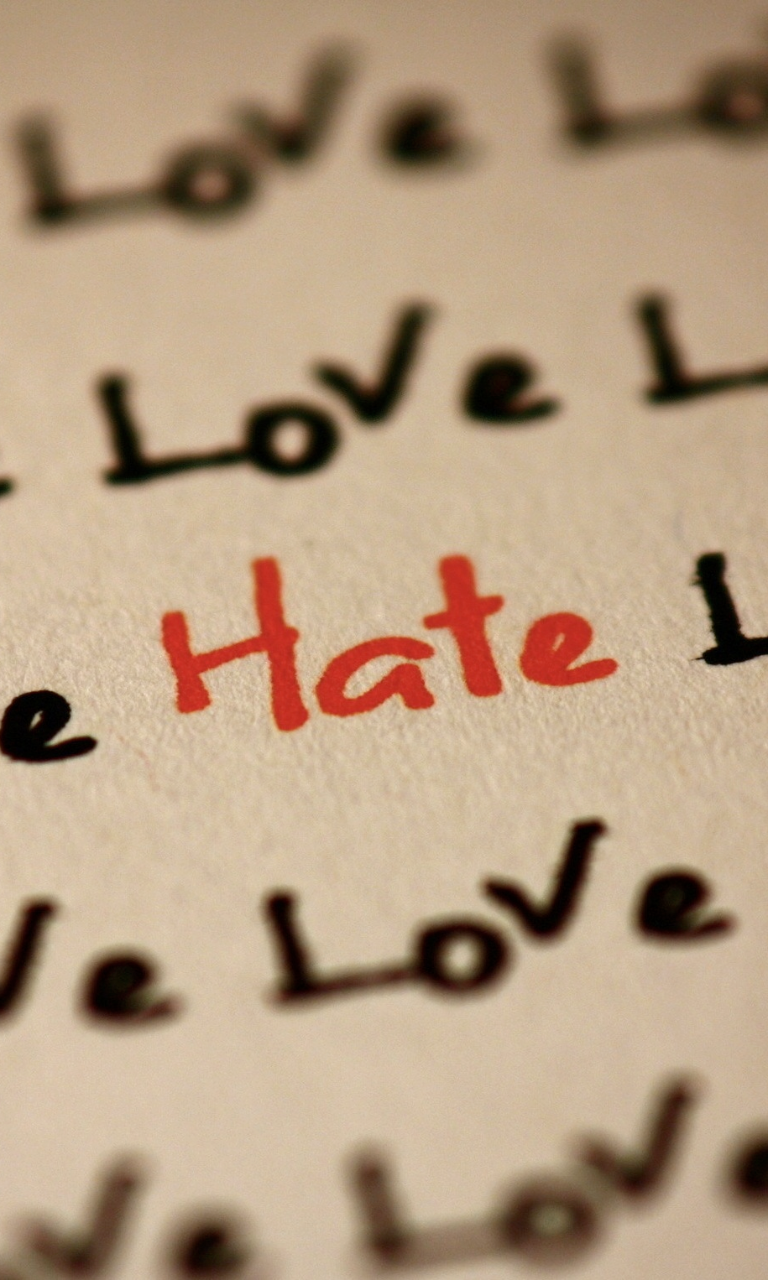 Love Lo
e Love L
e Hate L
ve Love
ve Love